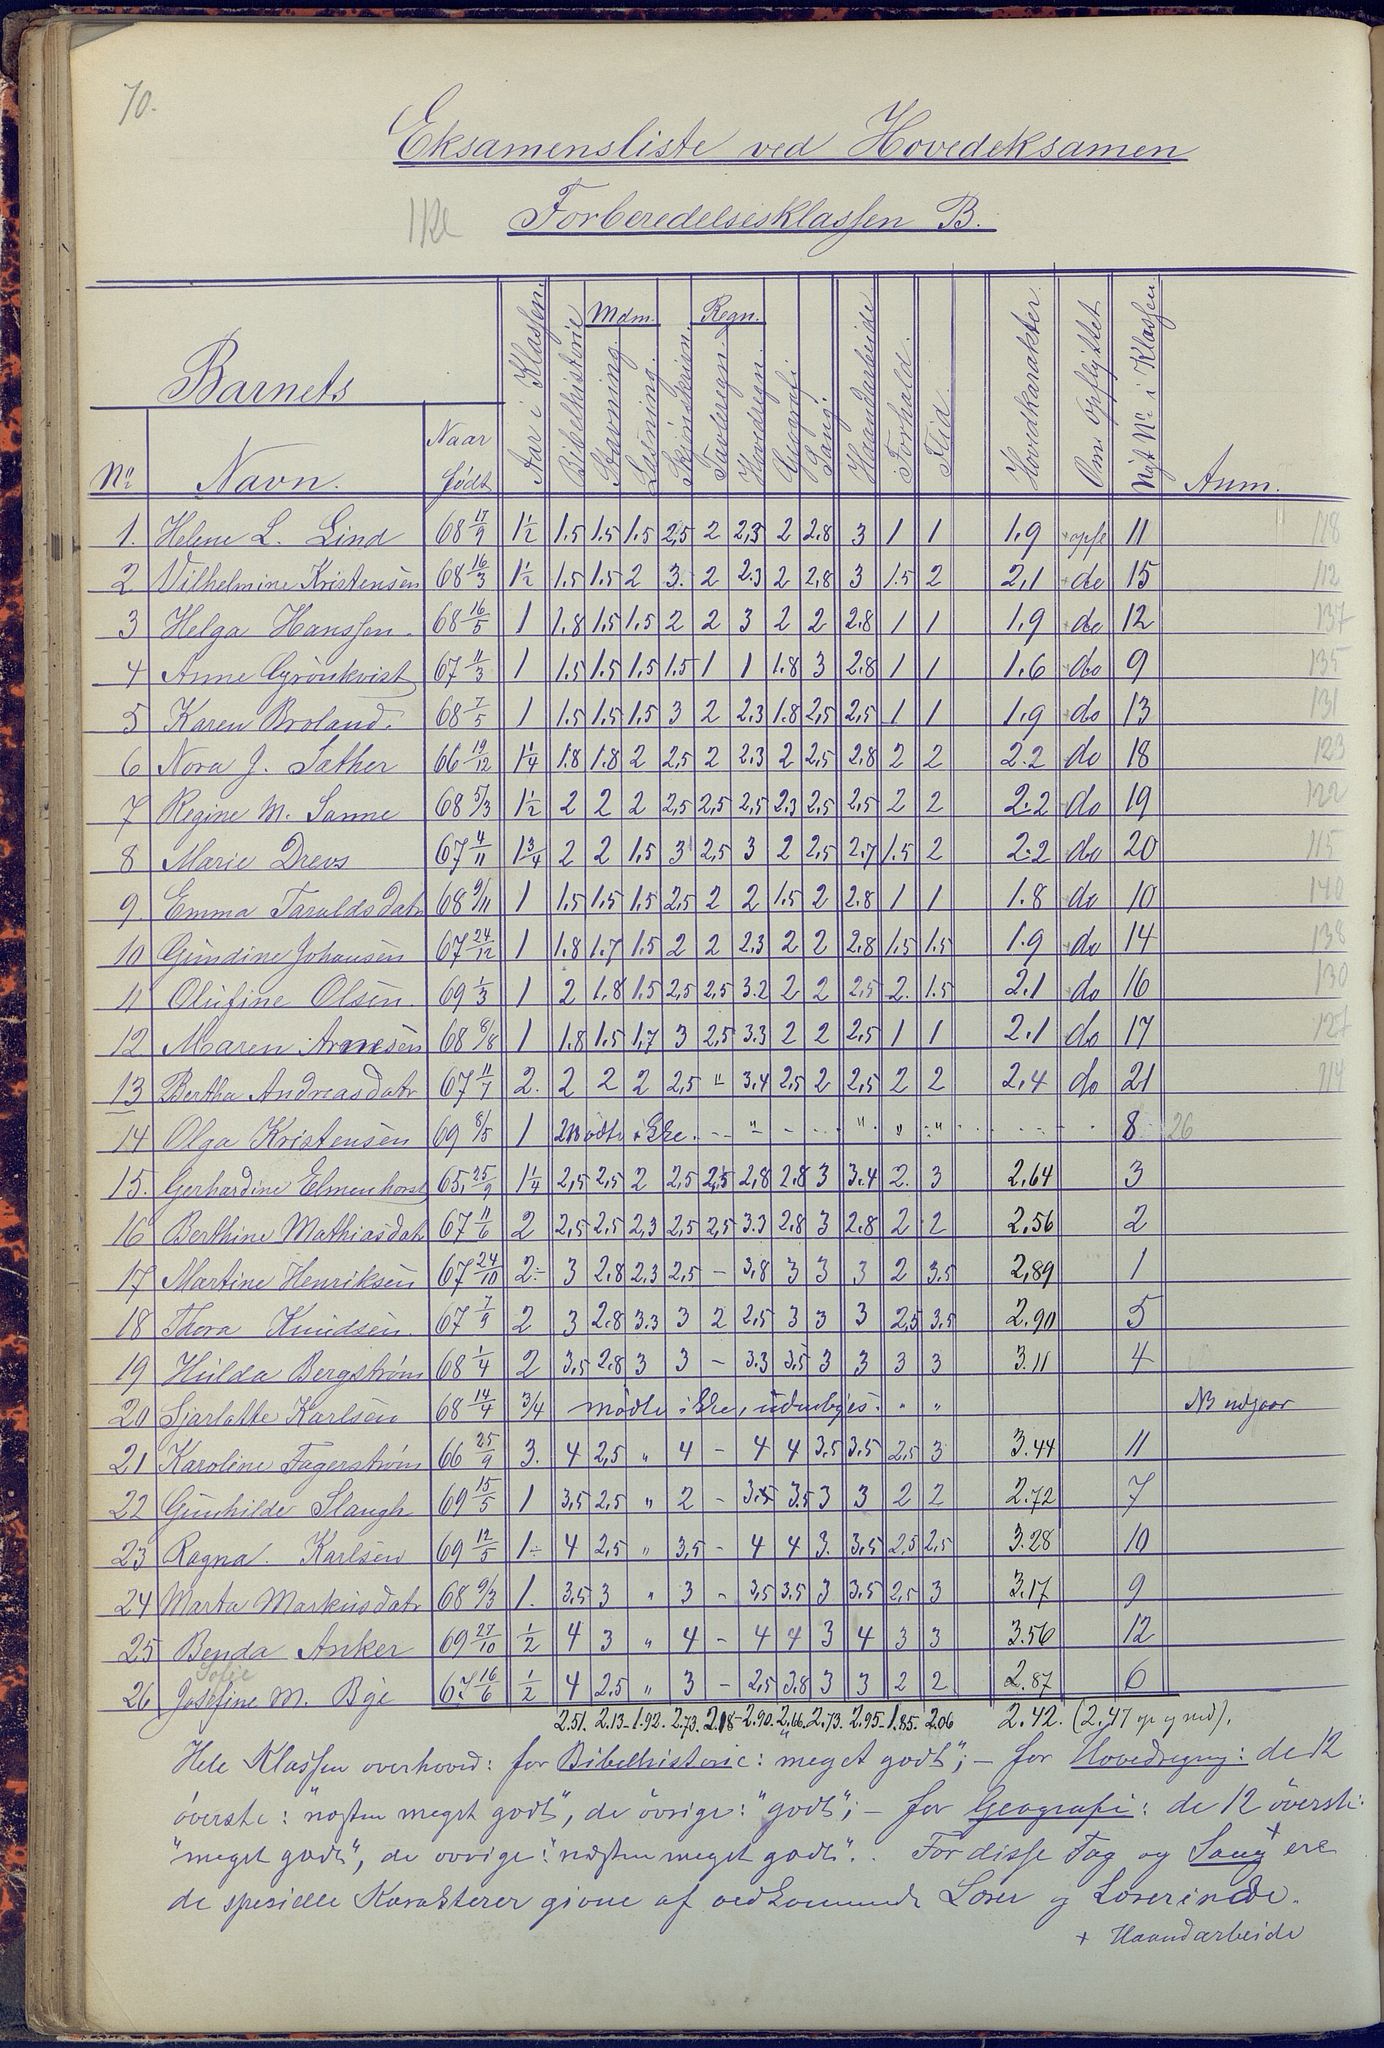 70.
Eksamensliste ved Hovedeksamen
Forberedelsesklassen B.
Barnets
Nº Navn. Naar født Aar i Klassen. Bibelhistorie Mdm. Stavning. Læsning. Skjönskriven Regn. Tavleregn. Hovdregn. Geografi Sang. Haandarbeide Forhold. Flid. Hovedkarakter. Om opflyttet Nyt Nº i Klassen Anm.
1. Helene L. Lind 68 17/9 1 1/2 1.5 1.5 1.5 2,5 2 2,3 2 2.8 3 1 1 1.9 opfl 11 118
2 Vilhelmine Kristensen 68 16/3 1 1/2 1.5 1.5 2 3. 2 2.3 2 2,8 3 1.5 2 2,1 do 15 112
3 Helga Hanssen. 68 16/5 1 1.8 1.5 1.5 2 2 3 2 2 2.8 1 1 1.9 do 12 137
4 Anne Grönkvist 67 11/3 1 1.5 1.5 1.5 1.5 1 1 1.8 3 2.8 1 1 1.6 do 9 135
5 Karen Broland. 68 7/5 1 1.5 1.5 1.5 3 2 2.3 1.8 2,5 2,5 1 1 1.9 do 13 131
6 Nora J. Sather 66 19/12 1 1/4 1.8 1.8 2 2,5 2 2.3 2 2,5 2.8 2 2 2.2 do 18 123
7 Regine M. Sanne 68 5/3 1 1/2 2 2 2 2,5 2,5 2,5 2,3 2,5 2,5 2 2 2.2 do 19 122
8 Marie Drevs 67 4/11 1 3/4 2 2 1.5 3 2,5 3 2 2,5 2.7 1.5 2 2.2 do 20 115
9. Emma Taraldsdatr 68 9/11 1 1.5 1.5 1.5 2,5 2 2 1.5 2 2.8 1 1 1.8 do 10 140
10 Gundine Johansen 67 24/12 1 1.8 1.7 1.5 2 2 2.3 2 2 2.8 1.5 1.5 1.9 do 14 138
11 Olufine Olsen. 69 1/3 1 2 1.8 1.5 2,5 2,5 3.2 2 2 2,5 2. 1.5 2.1 do 16 130
12 Maren Arnesen 68 8/8 1 1.8 1.5 1,7 3 2,5 3.3 2 2 2,5 1 1 2.1 do 17 127
13 Bertha Andreasdatr 67 11/7 2. 2 2 2 2,5 " 3,4 2,5 2 2,5 2 2 2,4 do 21 114
14 Olga Kristensen 69 8/5 1 mödte ikke. - - " - . . . " " " 8 26
15. Gerhardine Elmenhorst 65, 25/9 1 1/4 2,5 2,5 2 2,5 2,5 2,8 2.8 3 3.4 2. 3 2,64 3
16 Berthine Mathiasdatr 67 11/6 2 2,5 2,5 2,3 2,5 2,5 3.3 2.8 3 2.8 2 2 2,56 2
17 Martine Henriksen 67 24/10 2- 3 2.8 2,3 2,5 - 3,8 3 3 3 2 3,5 2,89 1
18 Thora Knudsen. 67 7/9 2 3 2.8 3.3 3 2 2,5 3 3 3 2,5 3,5 2.90 5
19 Hulda Bergström 68 1/4 2 3,5 2.8 3 3 - 3.3 3,5 3 3 3 3 3.11 4
20 Sjarlotte Karlsen 68 14/4 3/4 mödte ikke, udenbyes. " " NB udgaar
21 Karoline Fagerström 66 25/9 3. 4 2,5 " 4 - 4 4 3,5 3,5 2,5 3 3.44 11
22 Gunhilde Slaugh 69 15/5 1 3,5 2,5 " 2 - 3,5 3.5 3 3 2 2 2.72 7
23 Ragna. Karlsen 69 12/5 1- 4 2,5 " 3,5 - 4 4 3. 3,5 2,5 2,5 3.28 10
24 Marta Markusdatr 68 9/3 1. 3,5 3 " 3 - 3,5 3,5 3 3.5 2,5 3 3.17 9
25 Benda Anker 69 27/10 1/2 4 3 " 4 - 4 4 3 4 3 3 3.56 12
Sofie
26 Josefine M. Bge 67 16/6 1/2 4 2,5 " 3 - 2,5 3.8 3 3 2 2 2.87 6
2.51. 2.13- 1.92. 2.73. 2.18- 2.90. 2,66. 2.73. 2.95- 1.85. 2.06 2.42. (2.47 op og ned).
Hele Klassen overhoved: for Bibelhistorie: "meget godt"; - for Hovedregng: de 12
överste: "næsten meget godt", de övrige: "godt"; - for Geografi: de 12 överste:
"meget godt", de övrige: "næsten meget godt". For disse Fag og Sang + ere
de spesielle Karakterer givne af vedkommende Lærer og Lærerinde.
+ Haandarbeide